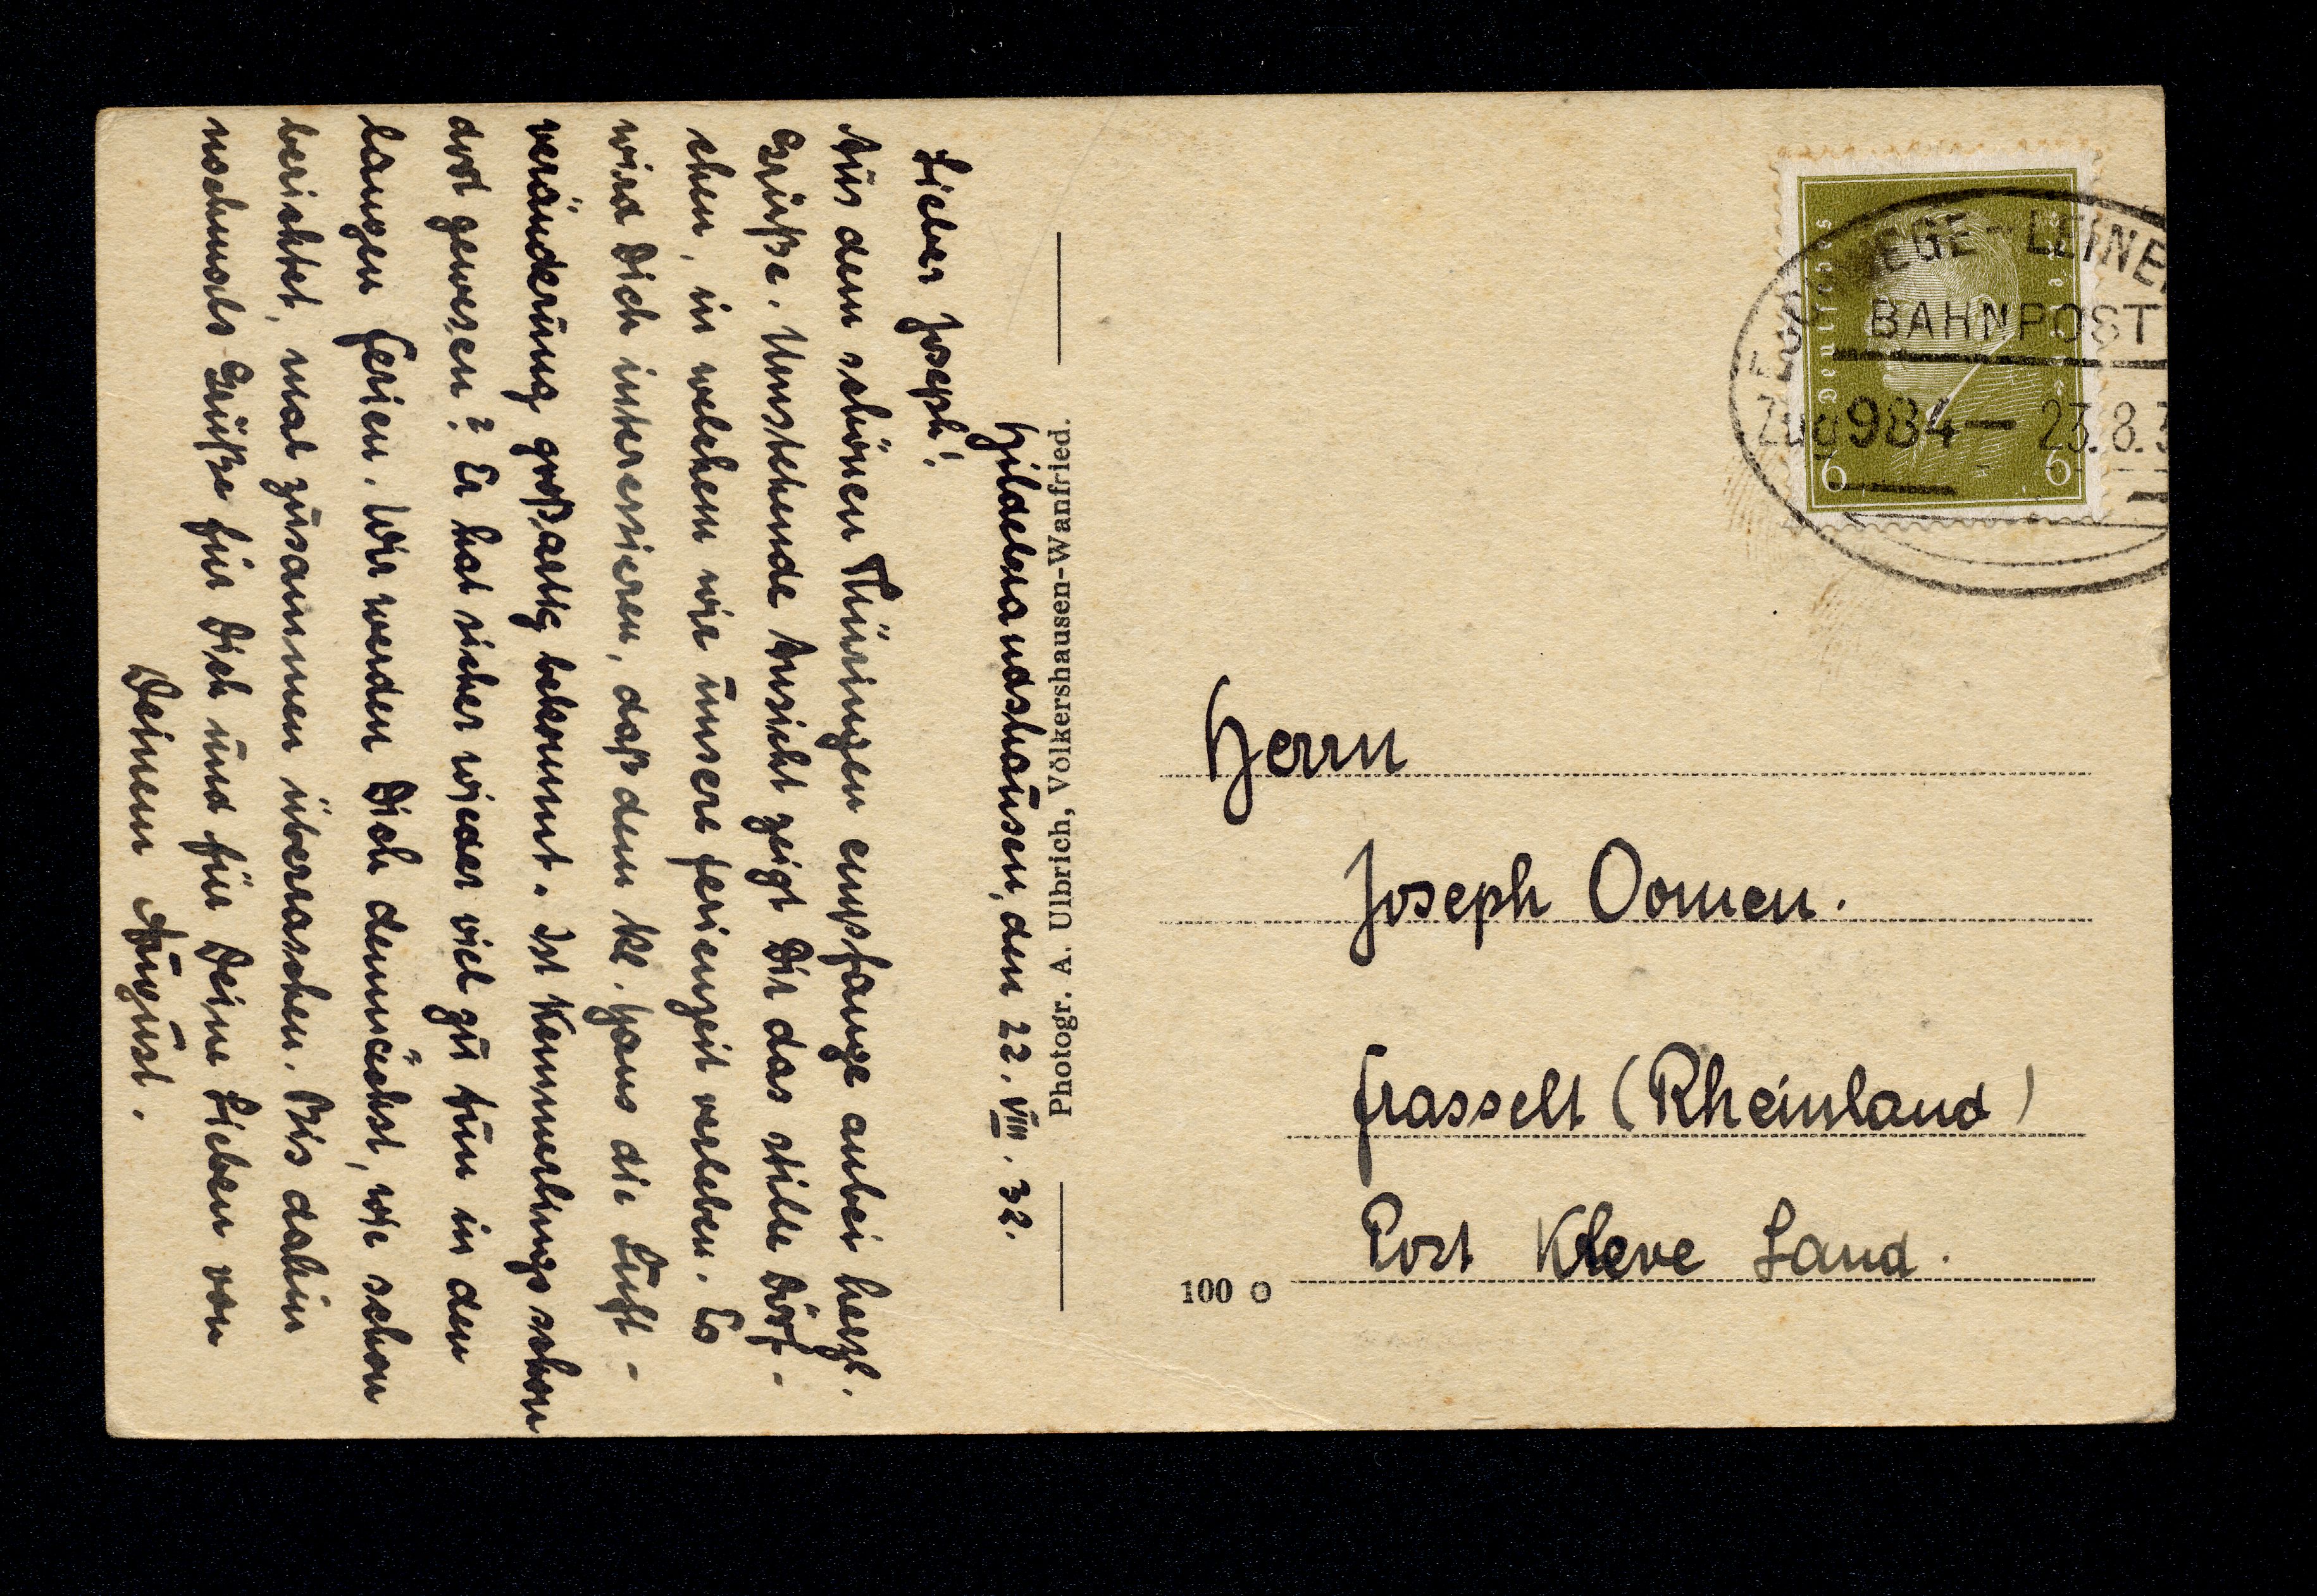 Hildebrandshausen, den 22. VIII. 32.
Lieber Joseph!
Aus dem schönen Thüringen empfange anbei herzl.
Grüße. Umstehende Ansicht zeigt Dir das stille Dörf-
chen, in welchem wir unsere Ferienzeit verleben. Es
wird Dich interessieren, daß dem kl. Hans die Luft-
veränderung großartig bekommt. Ist Kemmerlings schon
dort gewesen? Er hat sicher wieder viel zu tun in den
langen Ferien. Wir werden Dich demnächst, wie schon
berichtet, mal zusammen überraschen. Bis dahin
nochmals Grüße für Dich und für Deine Lieben von
Deinem August.
Photogr. A. Ulbrich, Völkershausen-Wanfried.
Deutsches
EGE-LEINE
BAHNPOST
Zug 984 - 23.8.3
6 6
Herrn
Joseph Oomen.
Frasselt (Rheinland)
Post Kleve Land.
100 o